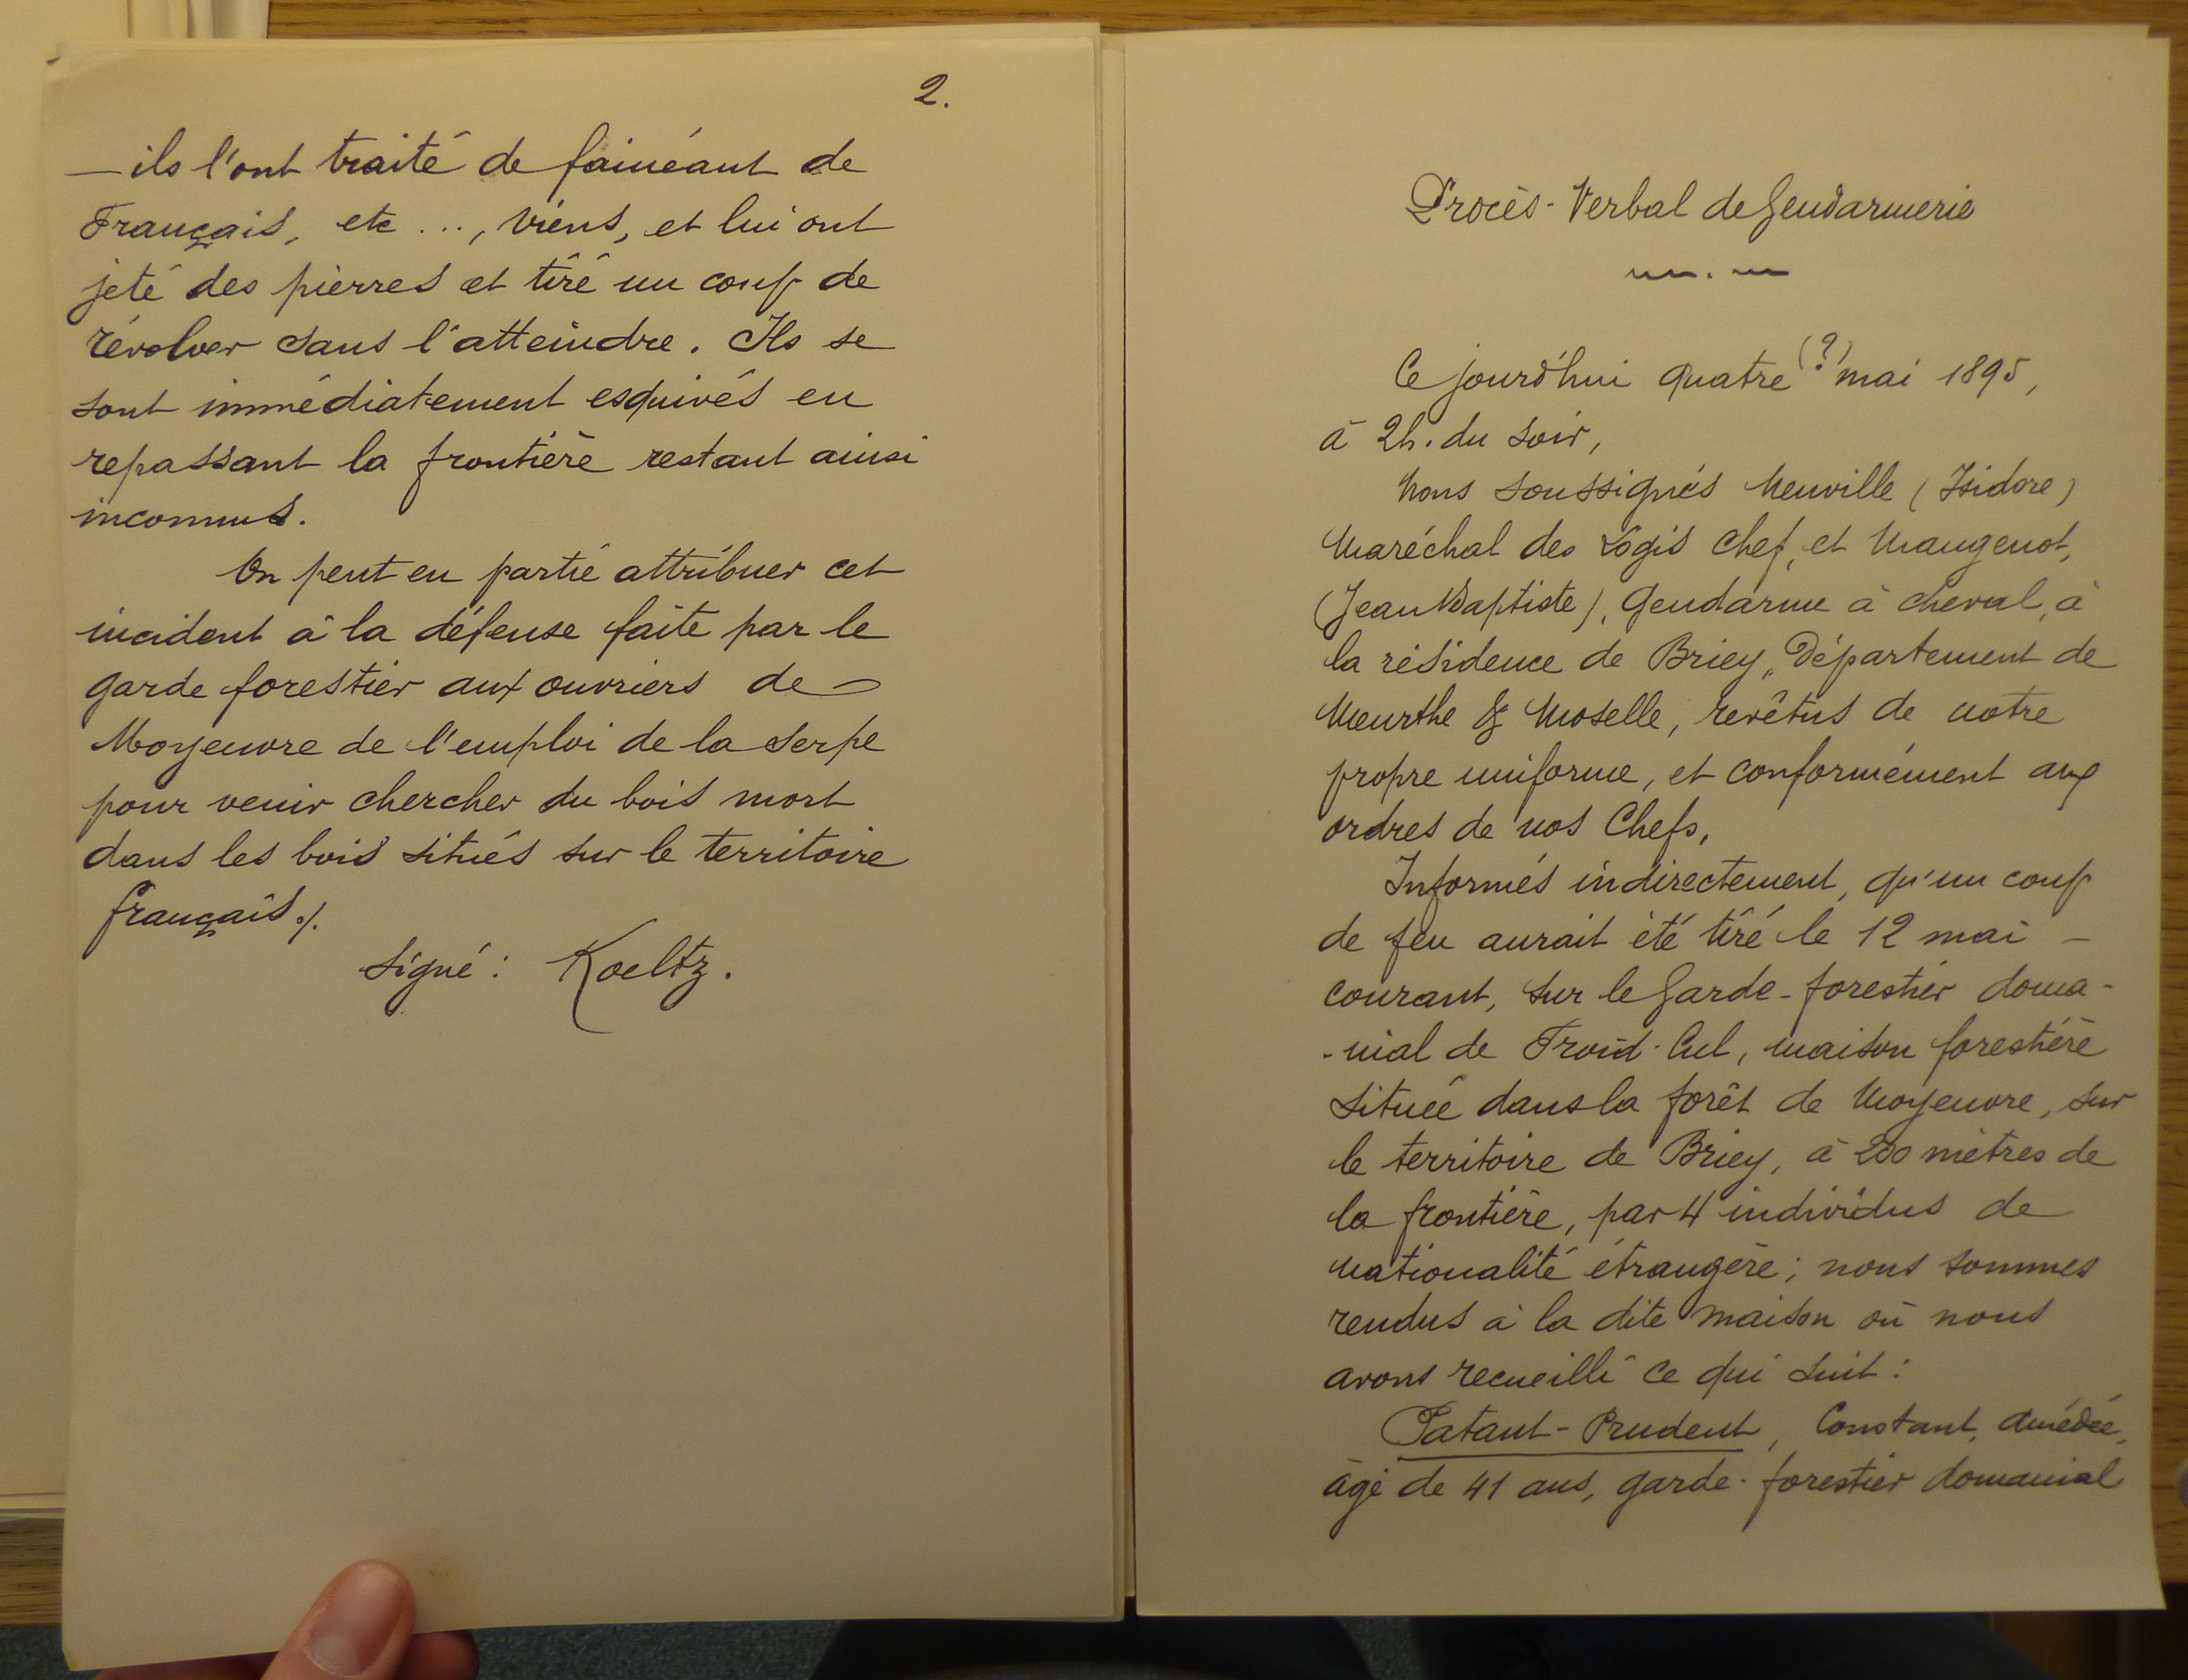 2.
— ils l'ont traité de fainéant de
Français, etc ..., viens, et lui ont
jeté des pierres et tiré un coup de
révolver sans l'atteindre. Ils se
sont immédiatement esquivés en
repassant la frontière restant ainsi
inconnus.
On peut en partie attribuer cet
incident à la défense faite par le
garde forestier aux ouvriers de
Moyeuvre de l'emploi de la serpe
pour venir chercher du bois mort
dans les bois situés sur le territoire
français ./.
Signé : Koeltz.
Procès-Verbal de Gendarmerie
Ce jourd'hui quatre (?) mai 1895,
à 2h. du soir,
Nous soussignés Neuville (Isidore)
Maréchal des Logis Chef, et Maugenot,
(Jean Baptiste), Gendarme à cheval, à
la résidence de Briey, Département de
Meurthe & Moselle, revêtus de notre
propre uniforme, et conformément aux
ordres de nos Chefs,
Informés indirectement, qu'un coup
de feu aurait été tiré le 12 mai —
courant, sur le Garde-forestier doma-
-nial de Froid-Cul, maison forestière
située dans la forêt de Moyeuvre, sur
le territoire de Briey, à 200 mètres de
la frontière, par 4 individus de
nationalité étrangère ; nous sommes
rendus à la dite maison où nous
avons recueilli ce qui suit :
Pataut-Prudent, Constant, Amédée,
âgé de 41 ans, garde-forestier domanial